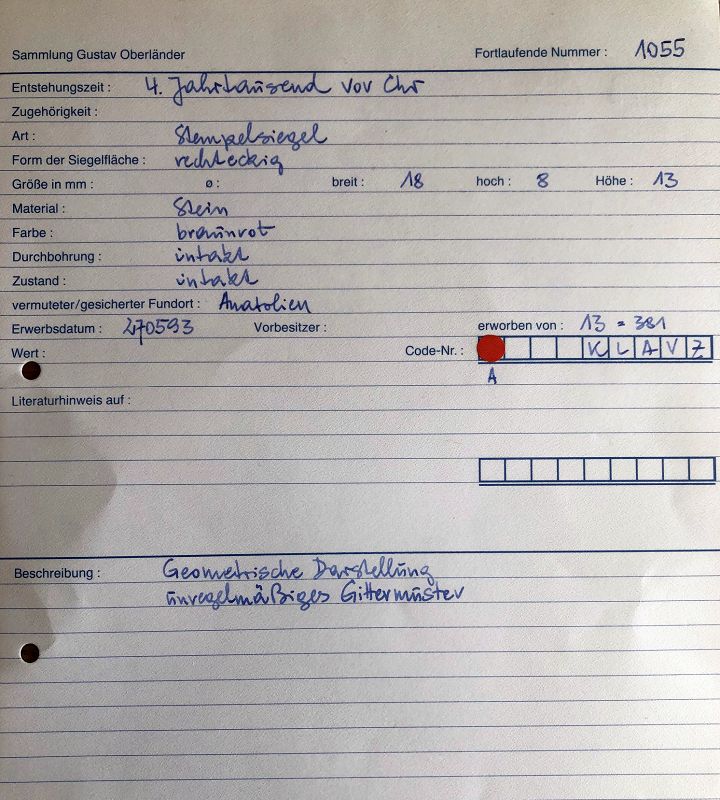 Sammlung Gustav Oberländer Fortlaufende Nummer : 1055
Entstehungszeit : 4. Jahrtausend vor Chr
Zugehörigkeit :
Art : Stempelsiegel
Form der Siegelfläche : rechteckig
Größe in mm : ø : breit : 18 hoch : 8 Höhe : 13
Material : Stein
Farbe : braunrot
Durchbohrung : intakt
Zustand : intakt
vermuteter/gesicherter Fundort : Anatolien
Erwerbsdatum : 270593 Vorbesitzer : erworben von : 13 = 381
Wert : Code-Nr. : K L A V Z
A
Literaturhinweis auf :
Beschreibung : Geometrische Darstellung
unregelmäßiges Gittermuster